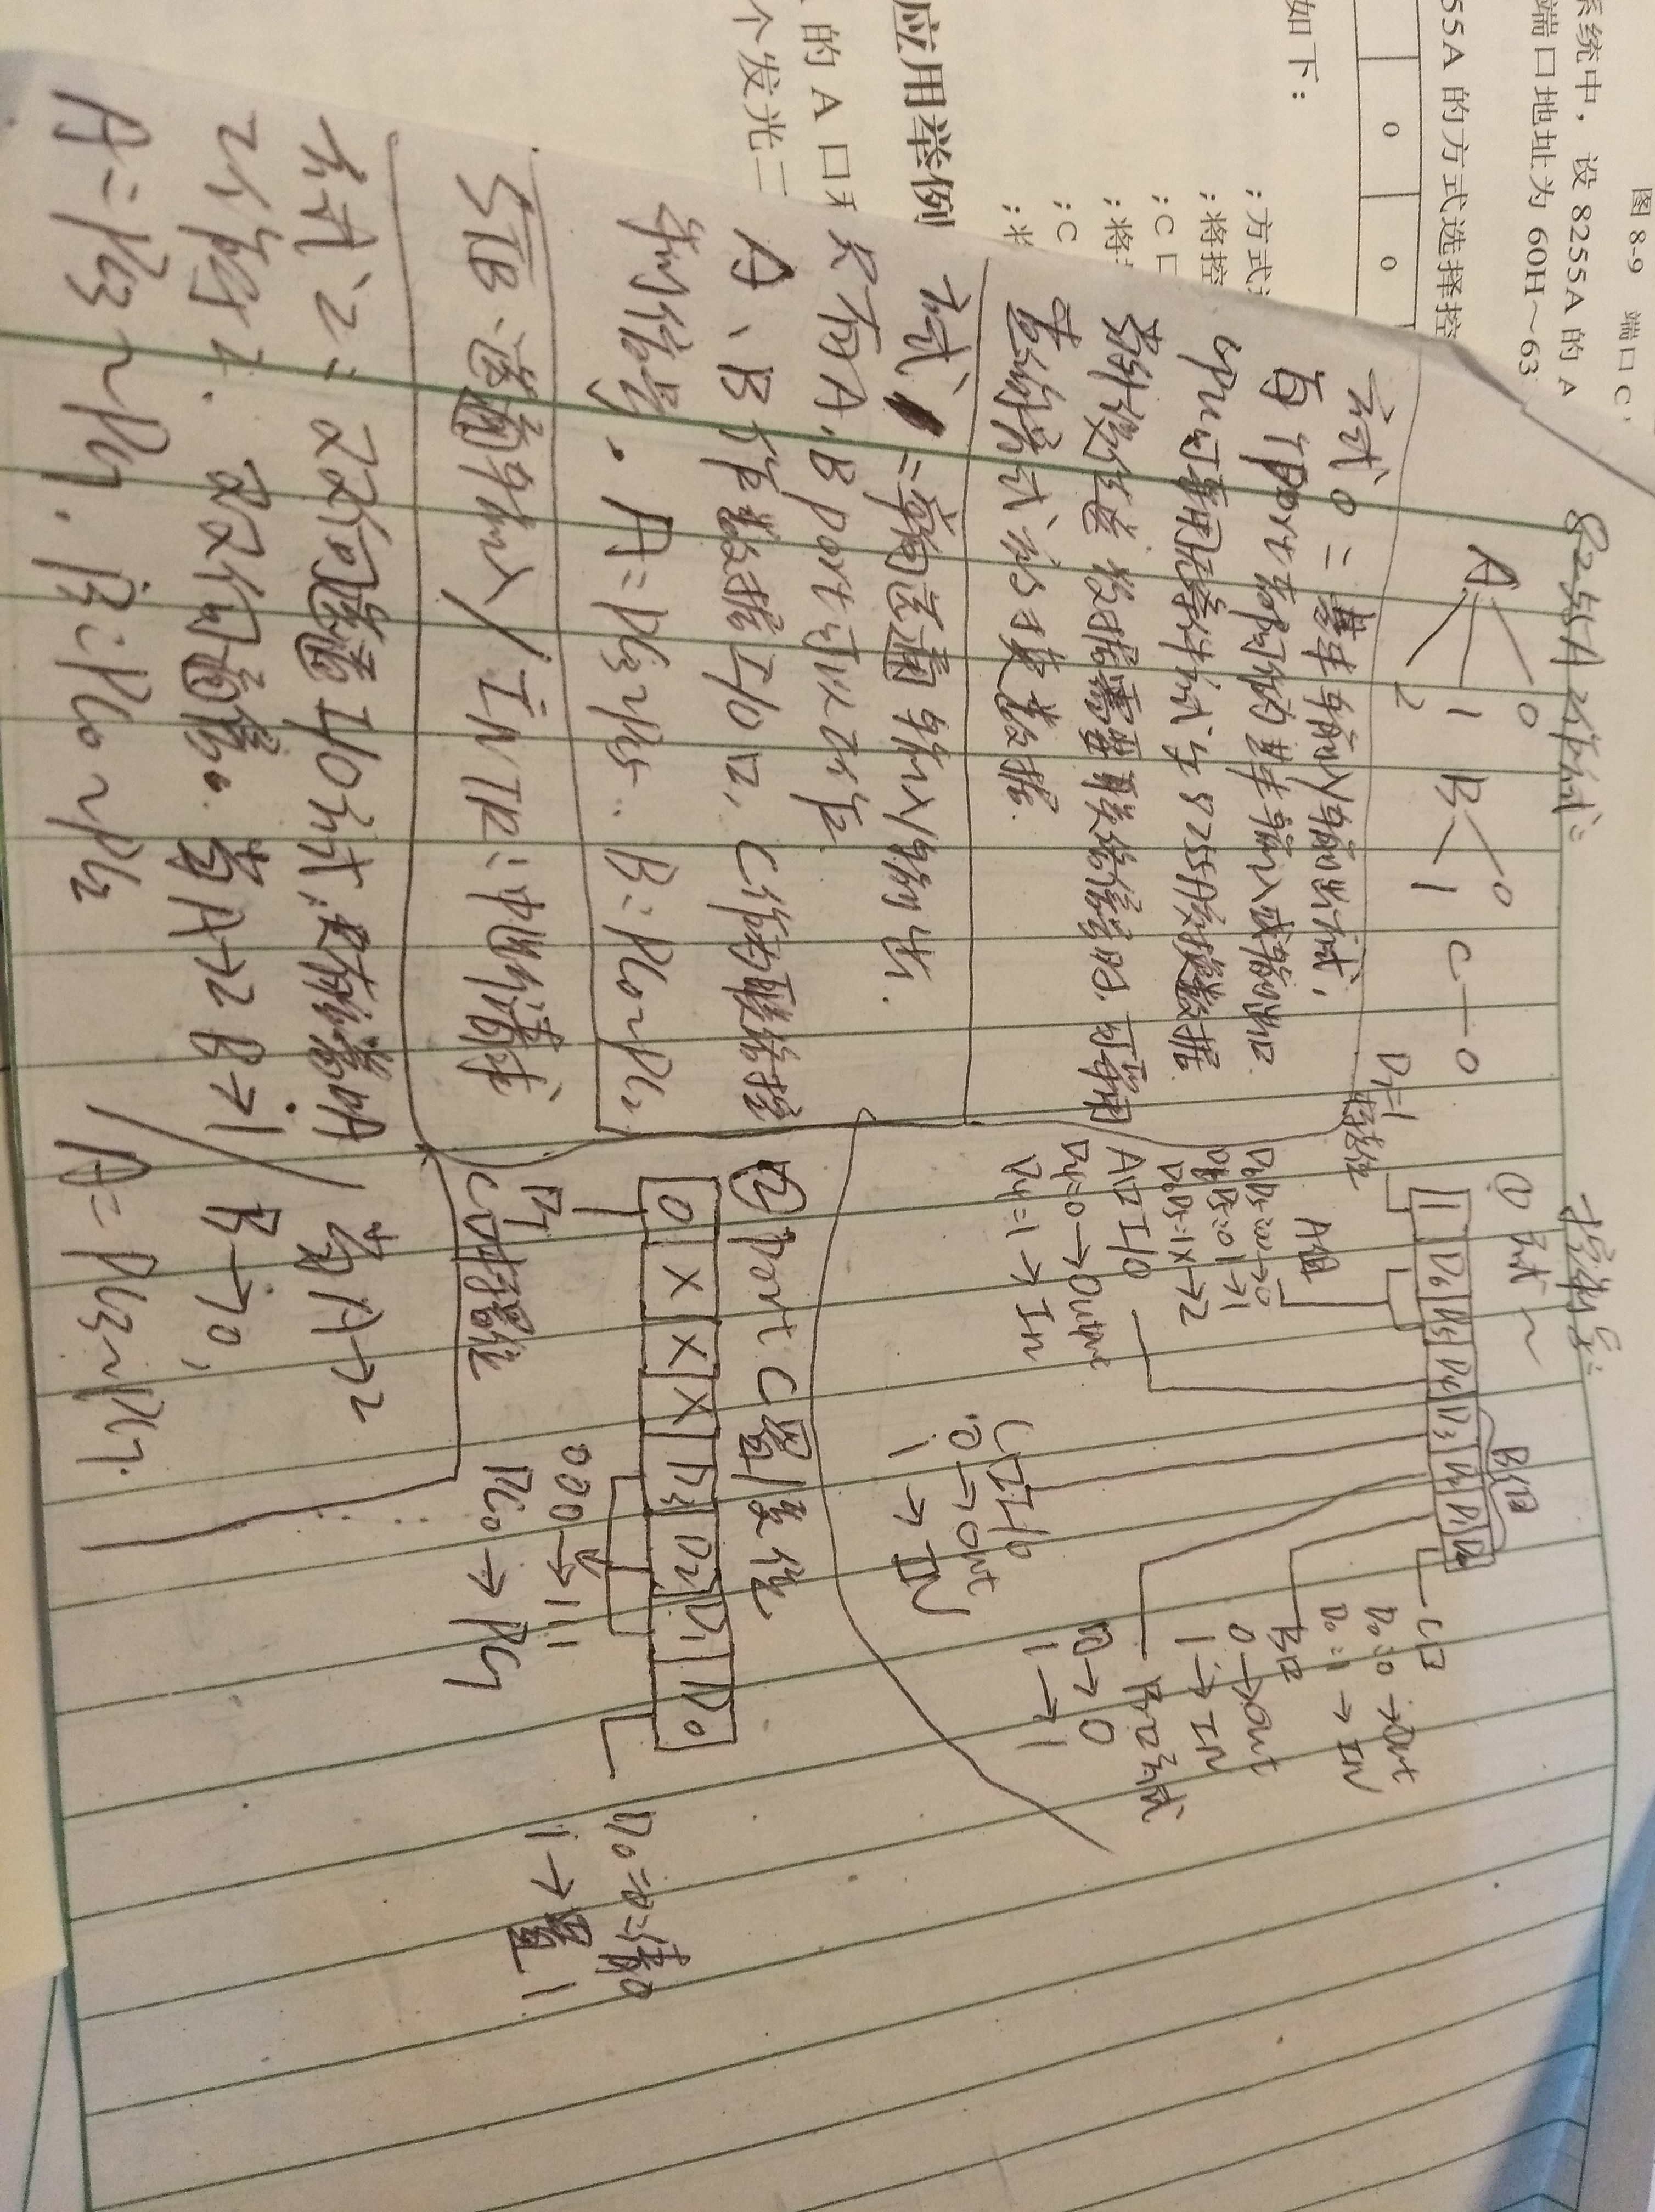 图 8-9 端口 C
系统中，设 8255A 的 A
端口地址为 60H～63
55A 的方式选择控
0 0
如下：
;方式选
;将控
;C 口
;将
;C
;将
应用举例
的 A 口和
个发光二
8255A工作方式:
A 0
1
2
B 0
1
C — 0
方式0: 基本输入/输出方式,
每个port都可作为基本输入或输出口.
CPU可采用无条件方式与8255A交换数据.
当外设传送数据需要联络信号时,可采用
查询方式交换数据.
方式1:单向选通输入/输出.
只有A,B port可以工作.
A、B作数据I/O口,C作为联络控
制信号. A:PC3~PC5. B:PC0~PC2
STB:选通输入/INTR:中断请求
方式2: 双向选通I/O方式,只有端口A
工作于2. 双向通信. 当A→2 B→1
A:PC3~PC7. B:PC0~PC2
当A→2
B→0,
A:PC3~PC7.
控制字:
① 方式~
B组
1 D6 D5 D4 D3 D2 D1 D0
D7=1
标志位
A组
D6D5:00→0
D6D5:01→1
D6D5:1X→2
A口I/O
D4=0→Output
D4=1→In
C口I/O
0→out
1→IN
C口
D0:0→Out
D0:1→IN
B口
0→out
1→IN
B口方式
0→0
1→1
② Port C置/复位
0 X X X D3 D2 D1 D0
D7
C口标置位
000→111
PC0→PC7
D0=0:清0
1→置1